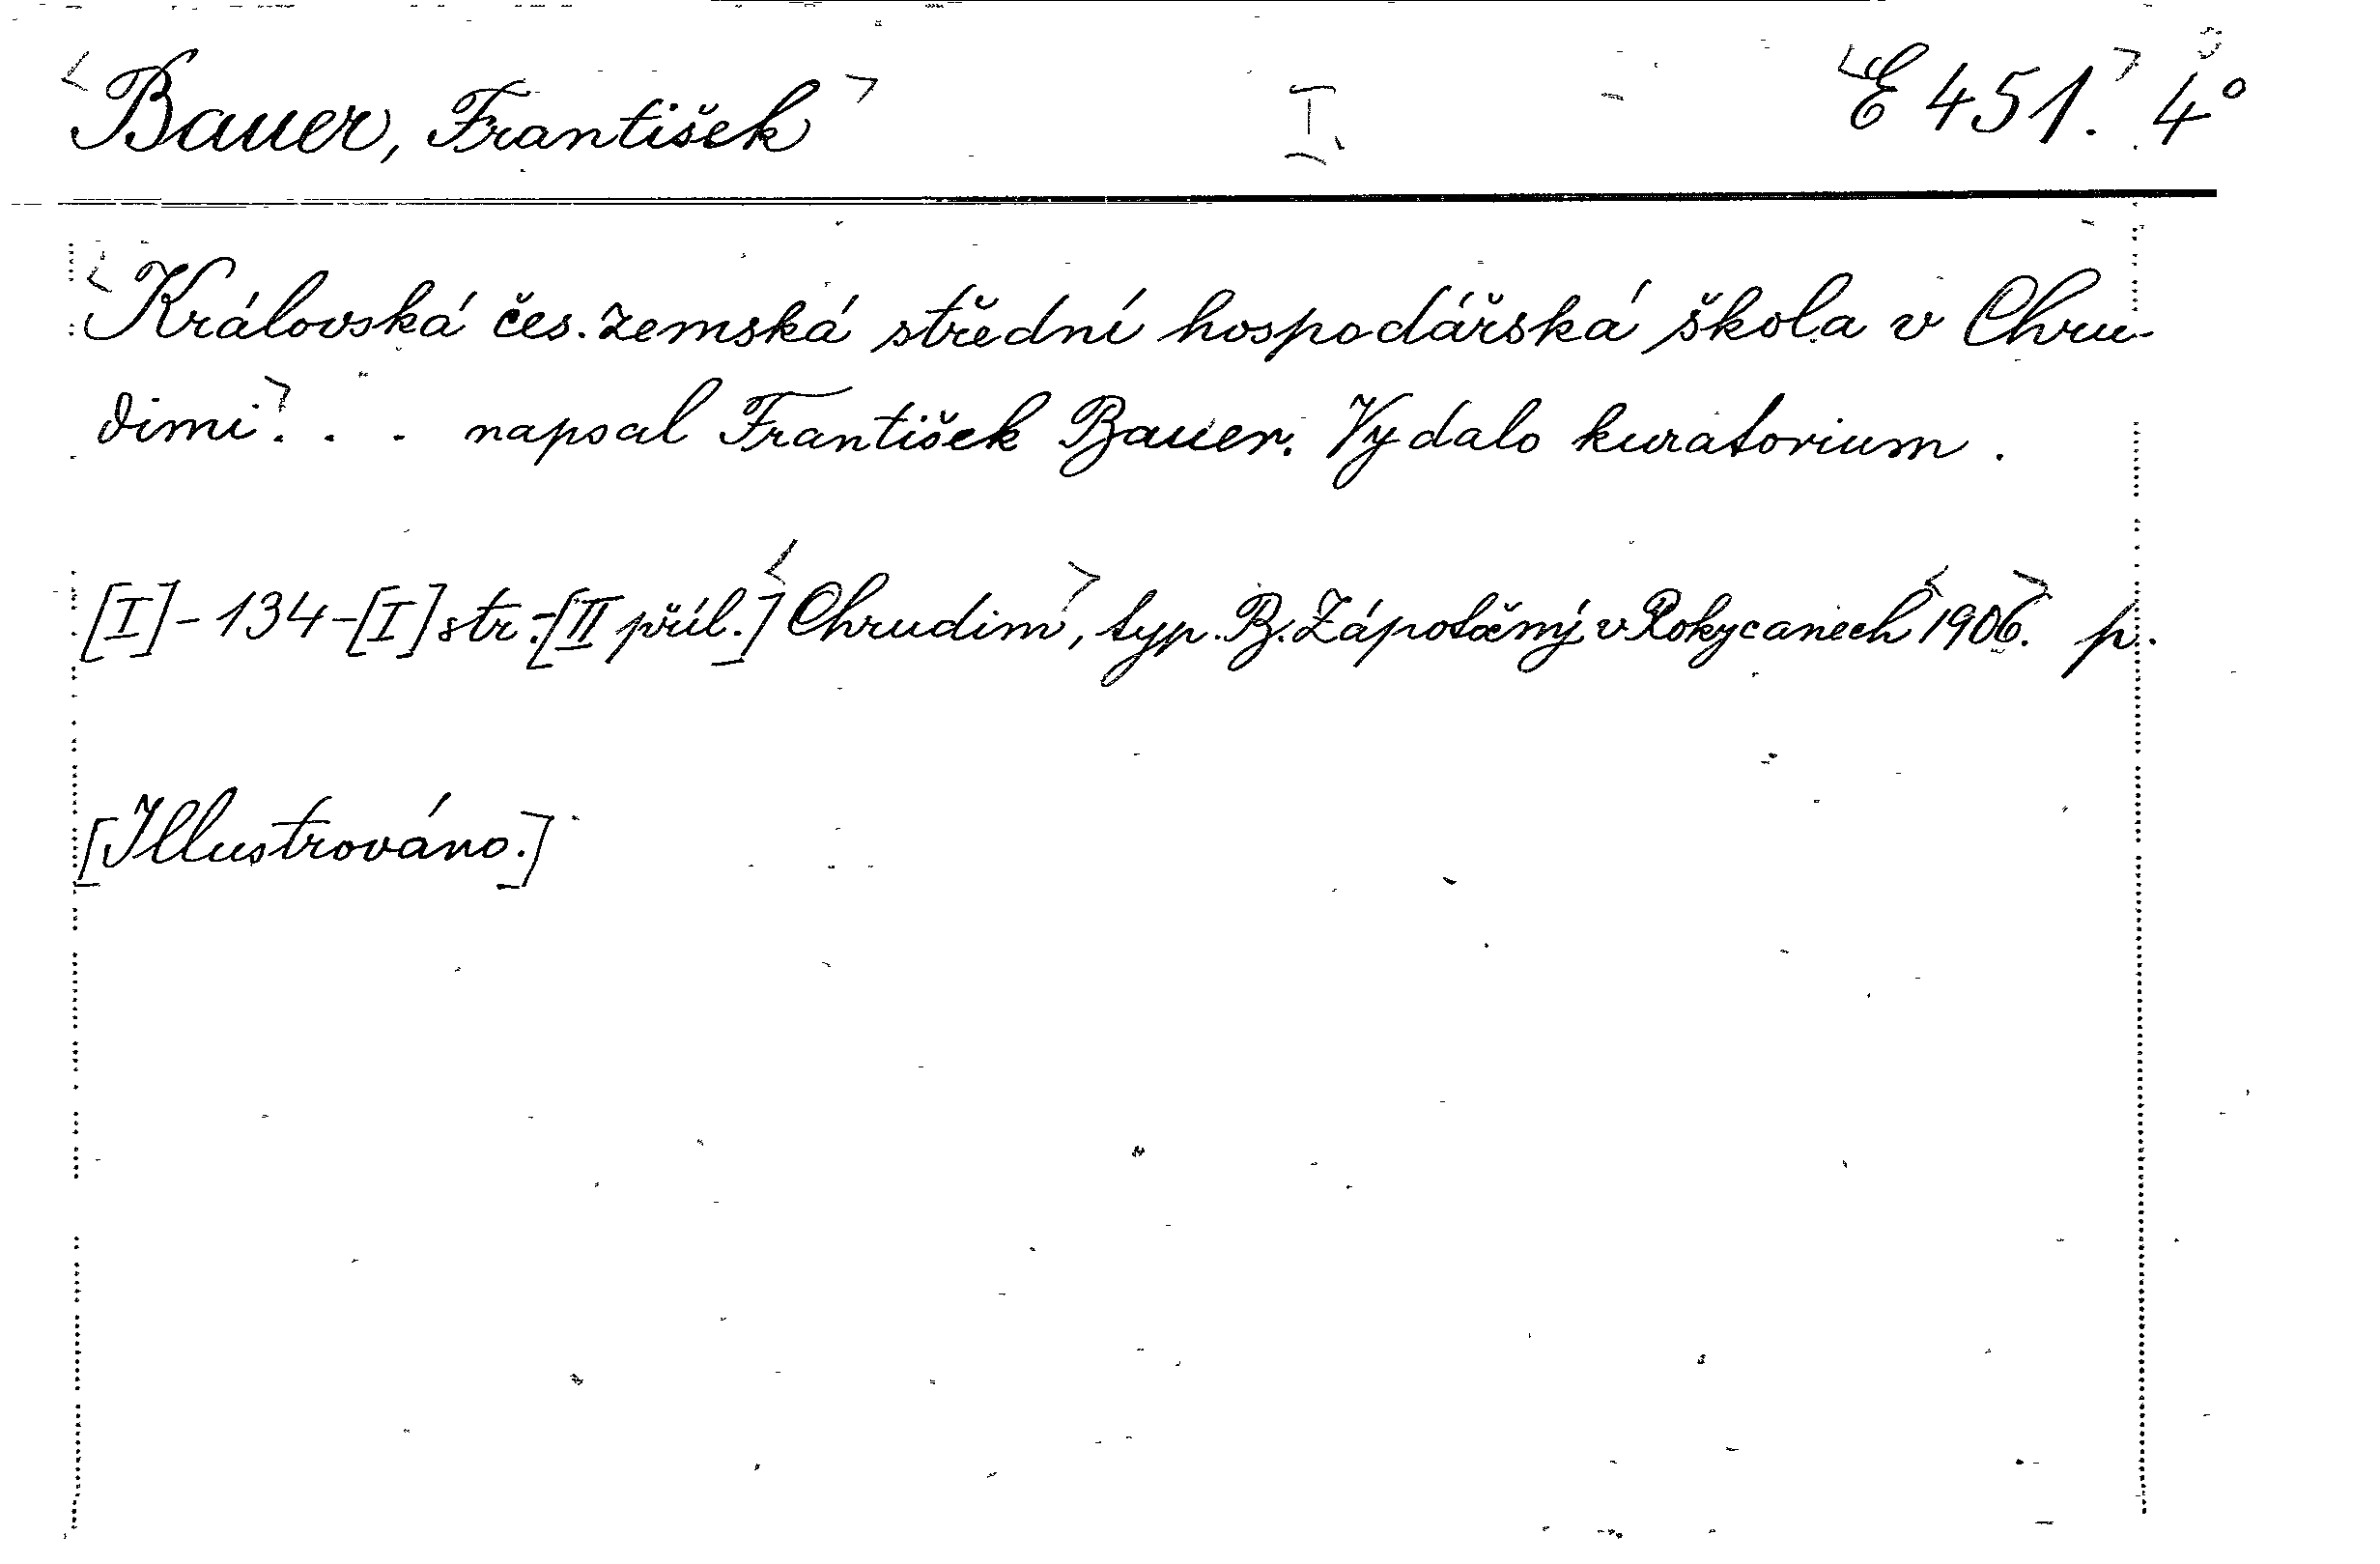 <Bauer, František> I. <E 451.> 4°
<Královská čes. zemská střední hospodářská škola v Chru-
dimi>. . . napsal František Bauer. Vydalo kuratorium.
[I]-134-[I] str.-[II příl.] <Chrudim>, typ. B. Zápotočný v Rokycanech <1906>. p.
[Illustrováno.]